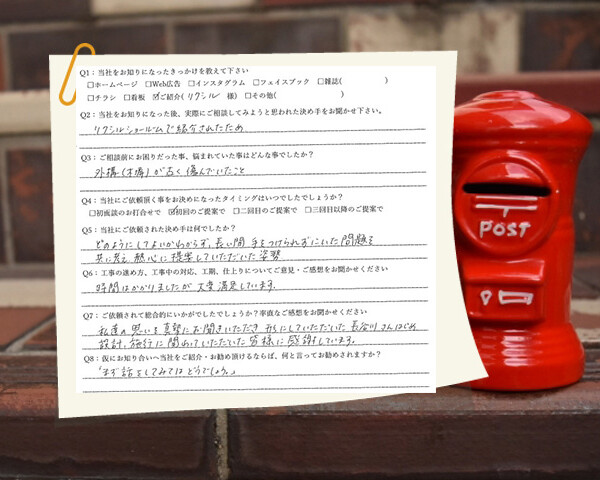 Q1：当社をお知りになったきっかけを教えて下さい
□ホームページ □Web広告 □インスタグラム □フェイスブック □雑誌( )
□チラシ □看板 ☑ご紹介( リクシル 様) □その他( )
Q2：当社をお知りになった後、実際にご相談してみようと思われた決め手をお聞かせ下さい。
リクシルショールームで紹介されたため
Q3：ご相談前にお困りだった事、悩まれていた事はどんな事でしたか？
外構(木塀)が古く傷んでいたこと
Q4：当社にご依頼頂く事をお決めになったタイミングはいつでしたでしょうか？
□初面談のお打合せで ☑初回のご提案で □二回目のご提案で □三回目以降のご提案で
Q5：当社にご依頼された決め手は何でしたか？
どのようにしてよいかわからず、長い間 手をつけられずにいた問題を
共に考え 熱心に提案していただいた姿勢
Q6：工事の進め方、工事中の対応、工期、仕上りについてご意見・ご感想をお聞かせください
時間はかかりましたが 大変満足しています。
Q7：ご依頼されて総合的にいかがでしたでしょうか？率直なご感想をお聞かせください
私達の思いを真摯にお聞きいただき 形にしていただいた 長谷川さんはじめ
設計、施行に関わっていただいた皆様に感謝しています。
Q8：仮にお知り合いへ当社をご紹介・お勧め頂けるならば、何と言ってお勧めされますか？
「まず話をしてみてはどうでしょう。」
POST